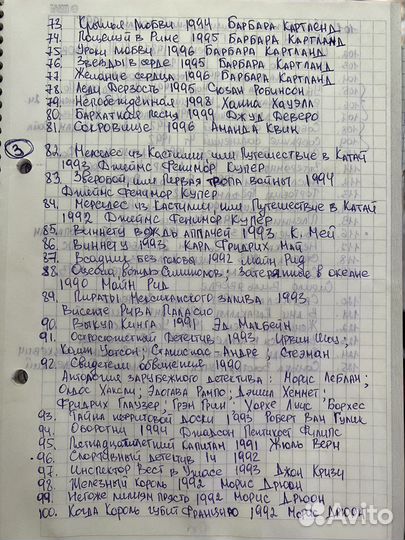 73. Крылья любви 1994 Барбара Картленд
74. Поцелуй в Риме 1995 Барбара Картланд
75. Уроки любви 1996 Барбара Картланд
76. Звёзды в сердце 1995 Барбара Картланд
77. Желание сердца 1996 Барбара Картланд
78. Леди Дерзость 1995 Сюзан Робинсон
79. Непобеждённая 1998 Ханна Хауэлл
80. Бархатная песня 1994 Джуд Деверо
81. Сокровище 1996 Аманда Квик
3
82. Мерседес из Кастилии или Путешествие в Катай
1993 Джеймс Фенимор Купер
83. Зверобой, или Первая тропа войны 1994
Джеймс Фенимор Купер
84. Мерседес из Кастилии, или Путешествие в Катай
1992 Джеймс Фенимор Купер
85. Виннету вождь апачей 1993 К. Мей
86. Виннету 1993 Карл Фридрих Май
87. Всадник без головы 1992 Майн Рид
88. Оцеола, вождь Семинолов; Затерянные в океане
1990 Майн Рид
89. Пираты Мексиканского залива 1993
Висенте Рива Паласио
90. Выкуп Кинга 1991 Эд Макбейн
91. Остросюжетный детектив 1993 Ирвин Шоу,
Колин Уотсон Станислас-Андре Стееман
92. Свидетель обвинения 1990
Антология зарубежного детектива: Морис Леблан;
Олдос Хаксли; Эдогава Рампо; Дэшил Хеммет
Фридрих Глаузер; Грэм Грин Хорхе Луис Борхес
93. Тайна нефритовой доски 1993 Роберт Ван Гулик
94. Оборотни 1994 Джадсон Пентикост Филипс
95. Пятнадцатилетний капитан 1991 Жюль Верн
96. Спортивный детектив 1ч 1992
97. Инспектор Вест в Ужасе 1993 Джон Кризи
98. Железный король 1992 Морис Дрюон
99. Негоже лилиям прясть 1992 Морис Дрюон
100. Когда Король губит Францию 1992 Морис Дрюон
Avito